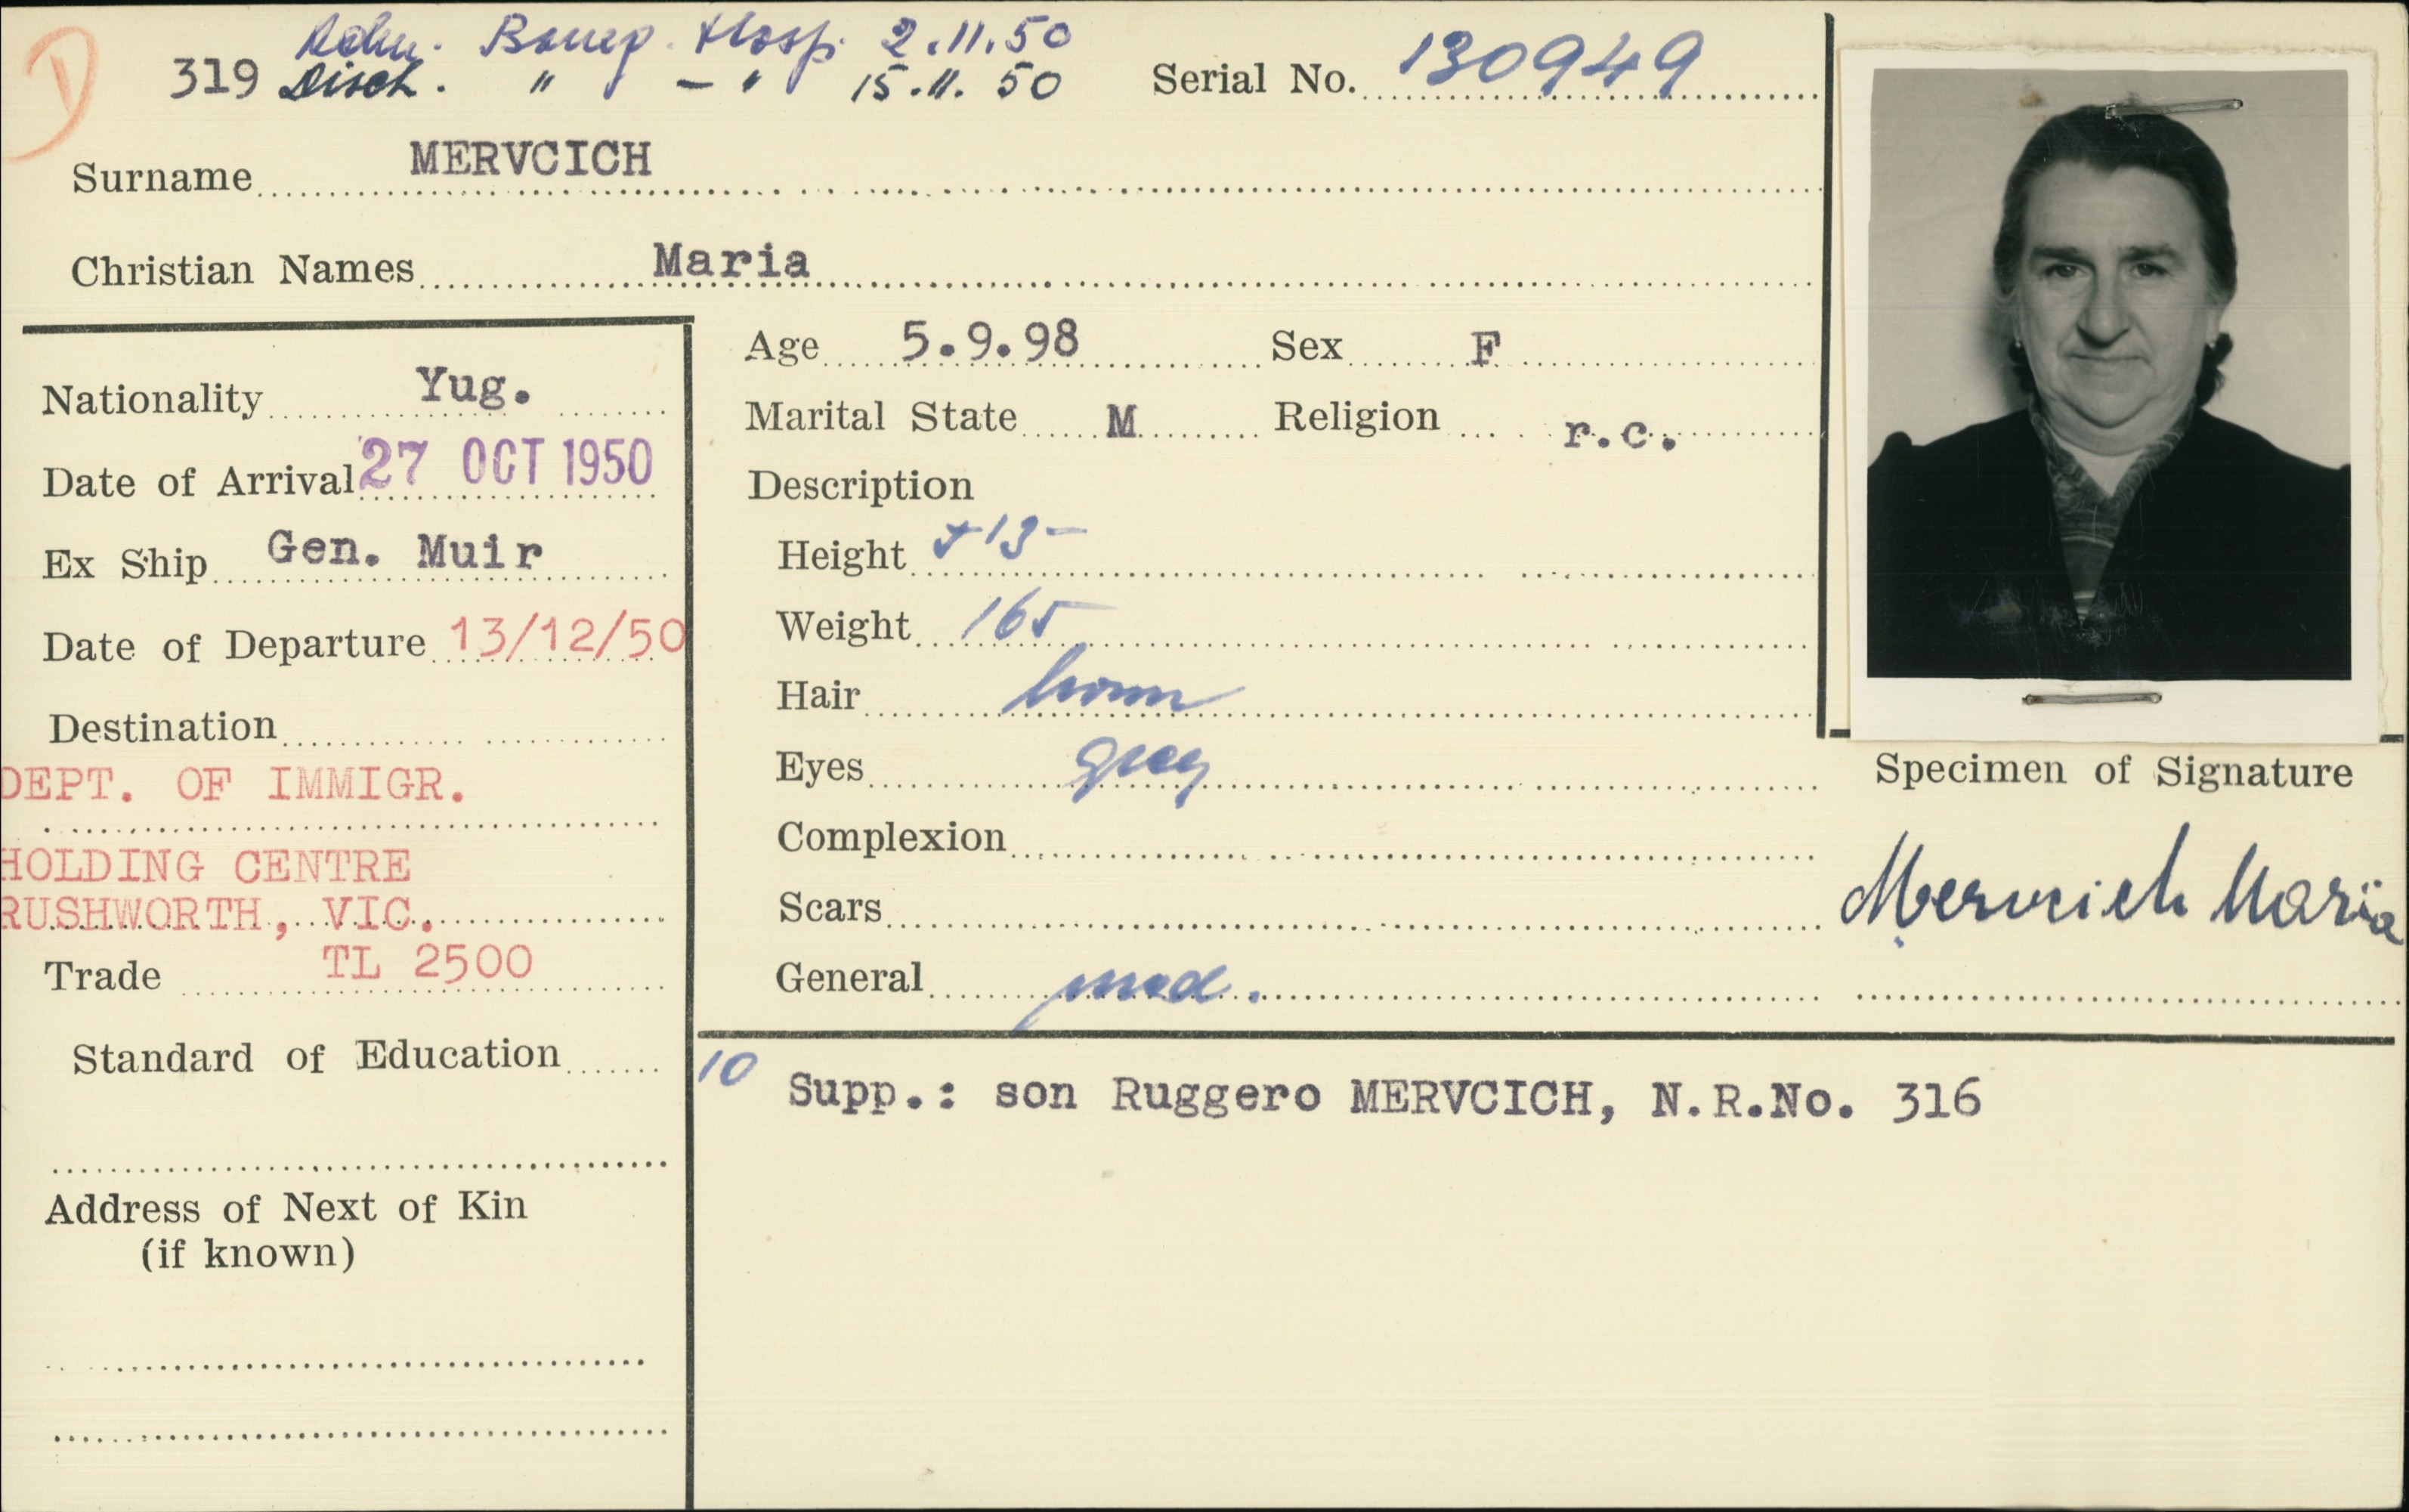 D
Adm. Boneg. Hosp. 2.11.50
319 Disch. " - " 15.11.50
Serial No. 130949
Surname MERVCICH
Christian Names Maria
Nationality Yug.
Date of Arrival 27 OCT 1950
Ex Ship Gen. Muir
Date of Departure 13/12/50
Destination
DEPT. OF IMMIGR.
HOLDING CENTRE
RUSHWORTH, VIC.
TL 2500
Trade
Standard of Education
Address of Next of Kin
(if known)
Age 5.9.98 Sex F
Marital State M Religion r.c.
Description
Height
Weight 165
Hair brown
Eyes grey
Complexion
Scars
General med.
Specimen of Signature
Mervcich Maria
10 Supp.: son Ruggero MERVCICH, N.R.No. 316